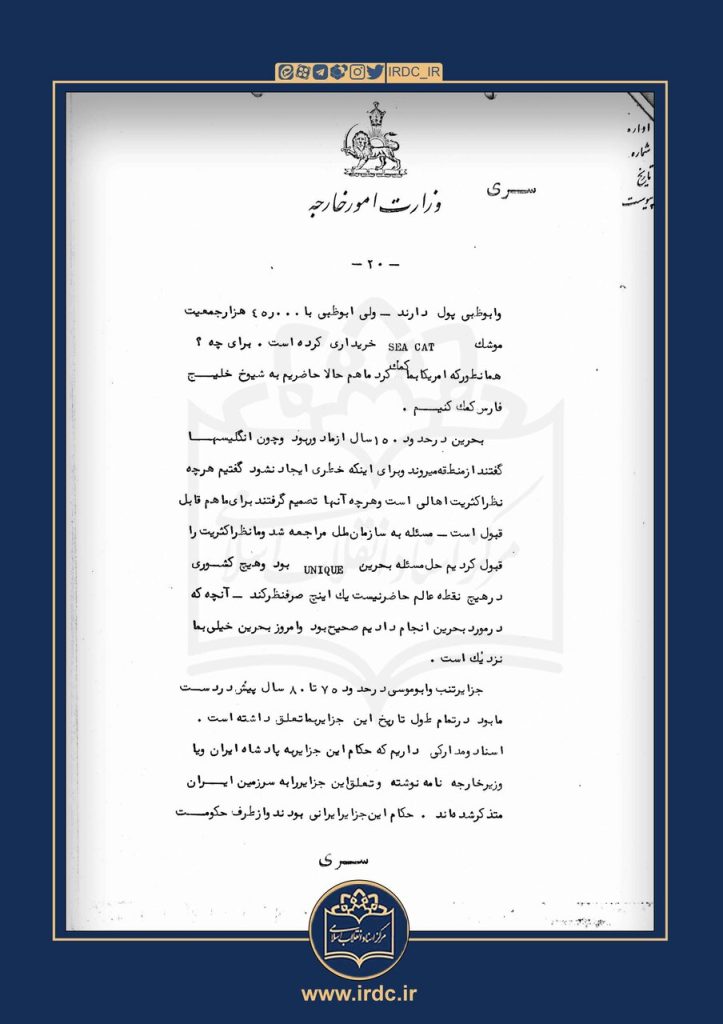 IRDC_IR
اداره
شماره
تاریخ
پیوست
سری
وزارت امور خارجه
— ۲۰ —
وابوظبی پول دارند — ولی ابوظبی با ۴۵ر۰۰۰ هزار جمعیت
موشك SEA CAT خریداری کرده است . برای چه ؟
همانطور که امریکا بما کمك کرد ما هم حالا حاضریم به شیوخ خلیج
فارس کمك کنیم .
بحرین در حدود ۱۵۰ سال از ما دور بود وچون انگلیسها
گفتند از منطقه میروند وبرای اینکه خطری ایجاد نشود گفتیم هرچه
نظر اکثریت اهالی است وهرچه آنها تصمیم گرفتند برای ما هم قابل
قبول است — مسئله به سازمان ملل مراجعه شد وما نظر اکثریت را
قبول کردیم حل مسئله بحرین UNIQUE بود وهیچ کشوری
در هیچ نقطه عالم حاضر نیست یك اینچ صرفنظر کند — آنچه که
در مورد بحرین انجام دادیم صحیح بود وامروز بحرین خیلی بما
نزدیك است .
جزایر تنب وابوموسی در حدود ۷۵ تا ۸۰ سال پیش در دست
ما بود در تمام طول تاریخ این جزایر بما تعلق داشته است .
اسناد ومدارکی داریم که حکام این جزایر به پادشاه ایران ویا
وزیر خارجه نامه نوشته وتعلق این جزایر را به سرزمین ایران
متذکر شده اند . حکام این جزایر ایرانی بودند واز طرف حکومت
سری
مرکز اسناد انقلاب اسلامی
www.irdc.ir